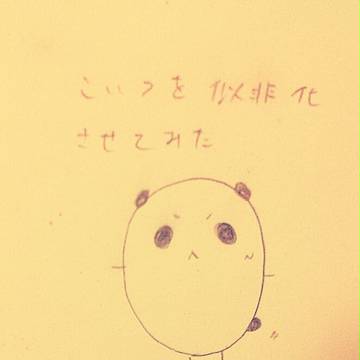 こいつを 似非化
させてみた